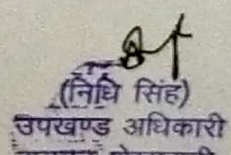 (निधि सिंह)
उपखण्ड अधिकारी